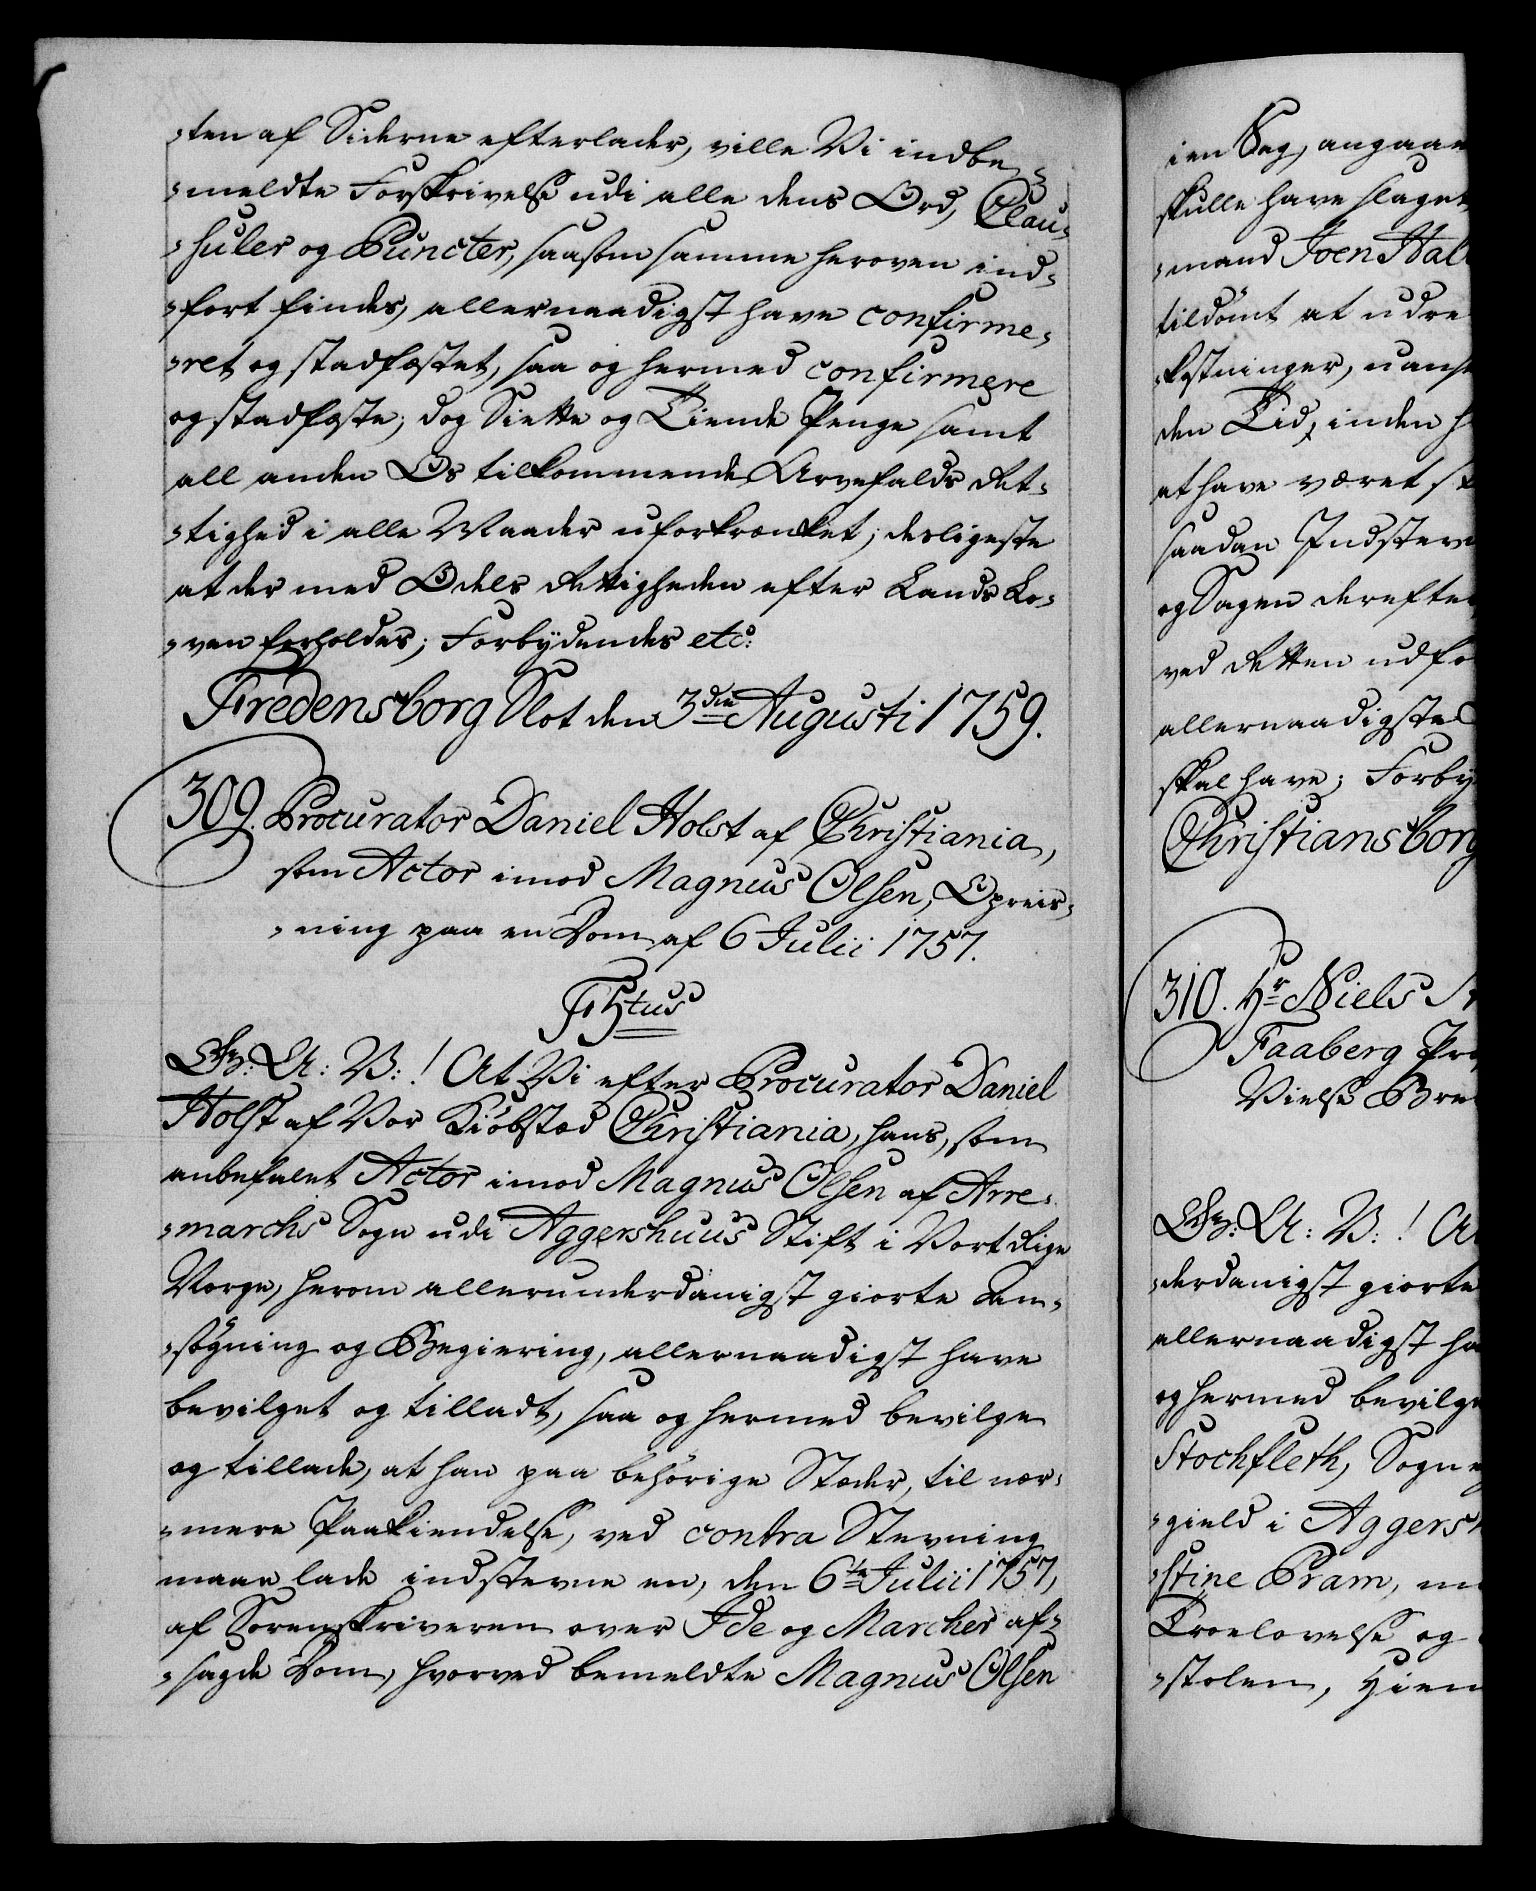 -ten af Siderne efterlader, ville Vi indbe-
-meldte Forskrivelse udi alle dens Ord, Clau-
-suler og Puncter, saasom samme heroven ind-
-fort findes, allernaadigst have confirme-
-ret og stadfæstet, saa og hermed confirmere
og stadfæste; dog Siette og Tiende Penge samt
all anden Os tilkommende Arvefalds Ret-
-tighed i alle Maader uforkrænket; desligeste
at der med Odels Rettigheden efter Lands Lo-
-ven forholdes; Forbydendes etc:
Fredensborg Slot den 3die Augusti 1759.
309. Procurator Daniel Holst af Christiania,
som Actor imod Magnus Olsen, Opreis-
-ning paa en Dom af 6 Julii 1757.
F5tus
Gr: A: V: ! At Vi efter Procurator Daniel
Holst af Vor Kiöbstæd Christiania, hans, som
anbefalet Actor imod Magnus Olsen af Arre-
-marchs Sogn udi Aggershuus Stift i Vort Rige
Norge, herom allerunderdanigst giorte An-
-søgning og Begiering, allernaadigst have
bevilget og tilladt, saa og hermed bevilge
og tillade, at han paa behörige Stæder, til nær-
-mere Paakiendelse, ved contra Stevning
maae lade indstevne en, den 6te Julii 1757,
af Sorenskriveren over Ide og Marcher af-
-sagde Dom, hvorved bemeldte Magnus Olsen
i en Sag, angaae
skulle have slaget
-mand Joen Hal
tildömt at udre
-kostninger, uanse
den Tid, inden h
at have været st
saadan Indstevn
og Sagen derefter
ved Retten udfø
allernaadigste
skal have; Forby
Christiansborg
310. Hr Niels St
Faaberg Pr
Vielse Bre
Gr: A: V: ! At
-derdanigst giorte
allernaadigst ha
og hermed bevilge
Stochfleth, Sogne
-gield i Aggersh
-stine Pram, m
Troelovelse og
-stolen, hiem